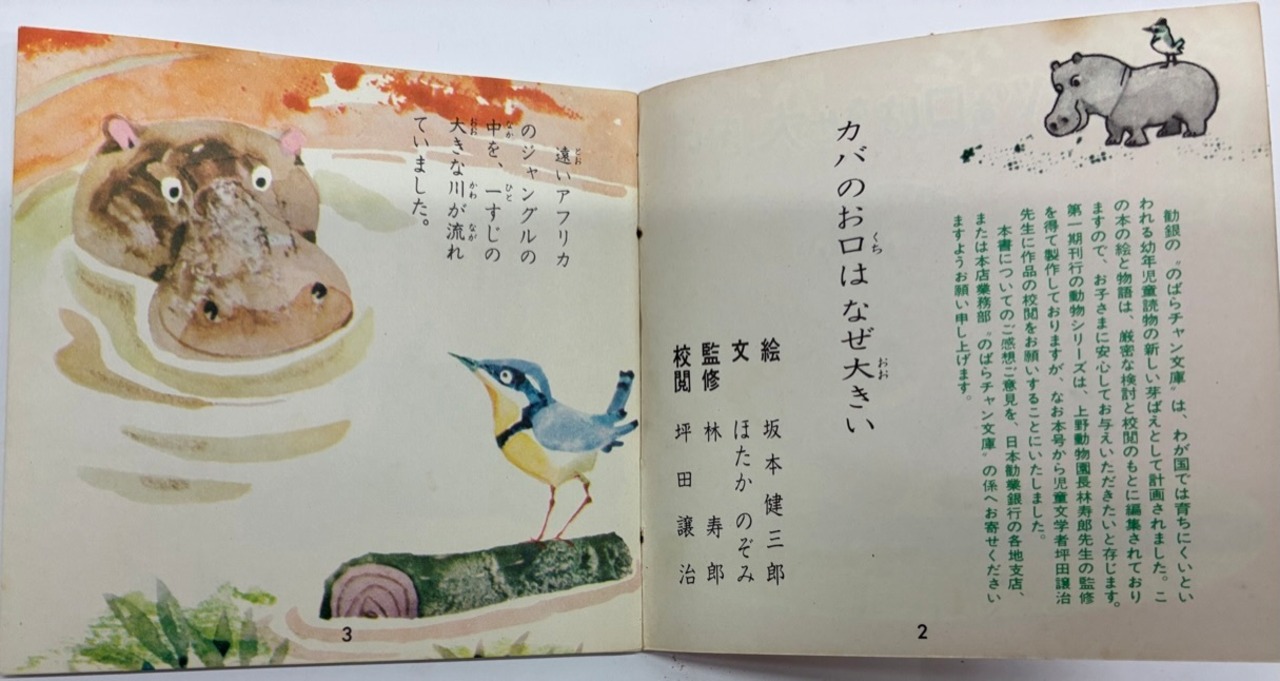 勧銀の〝のばらチャン文庫〟は、わが国では育ちにくいとい
われる幼年児童読物の新しい芽ばえとして計画されました。こ
の本の絵と物語は、厳密な検討と校閲のもとに編集されており
ますので、お子さまに安心してお与えいただきたいと存じます。
第一期刊行の動物シリーズは、上野動物園長林寿郎先生の監修
を得て製作しておりますが、なお本号から児童文学者坪田譲治
先生に作品の校閲をお願いすることにいたしました。
本書についてのご感想ご意見を、日本勧業銀行の各地支店、
または本店業務部〝のばらチャン文庫〟の係へお寄せください
ますようお願い申し上げます。
カバのお口はなぜ大きい
くち
おお
絵 坂本健三郎
文 ほたか のぞみ
監修 林 寿郎
校閲 坪田譲治
2
遠いアフリカ
とお
のジャングルの
中を、一すじの
なか ひと
大きな川が流れ
おお かわ なが
ていました。
3